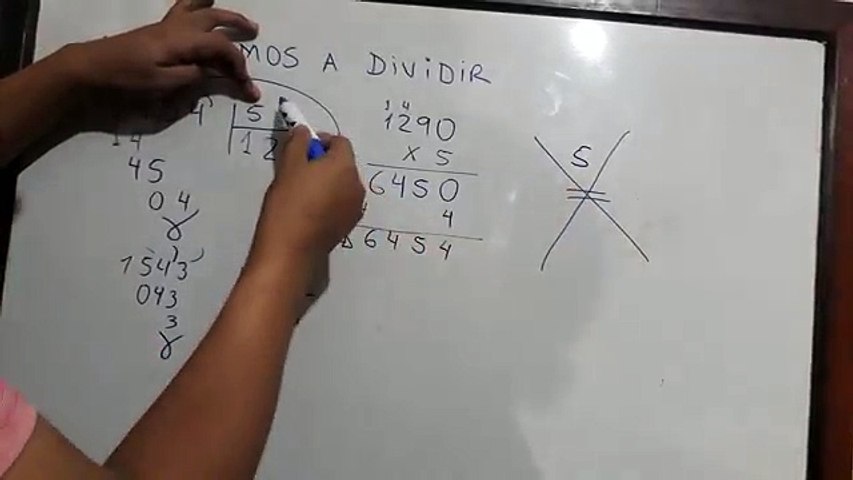 MOS A DIVIDIR
4 5
1 2
14
45
0 4
1543
043
3
3 4
1290
X 5
6450
4
6454
5